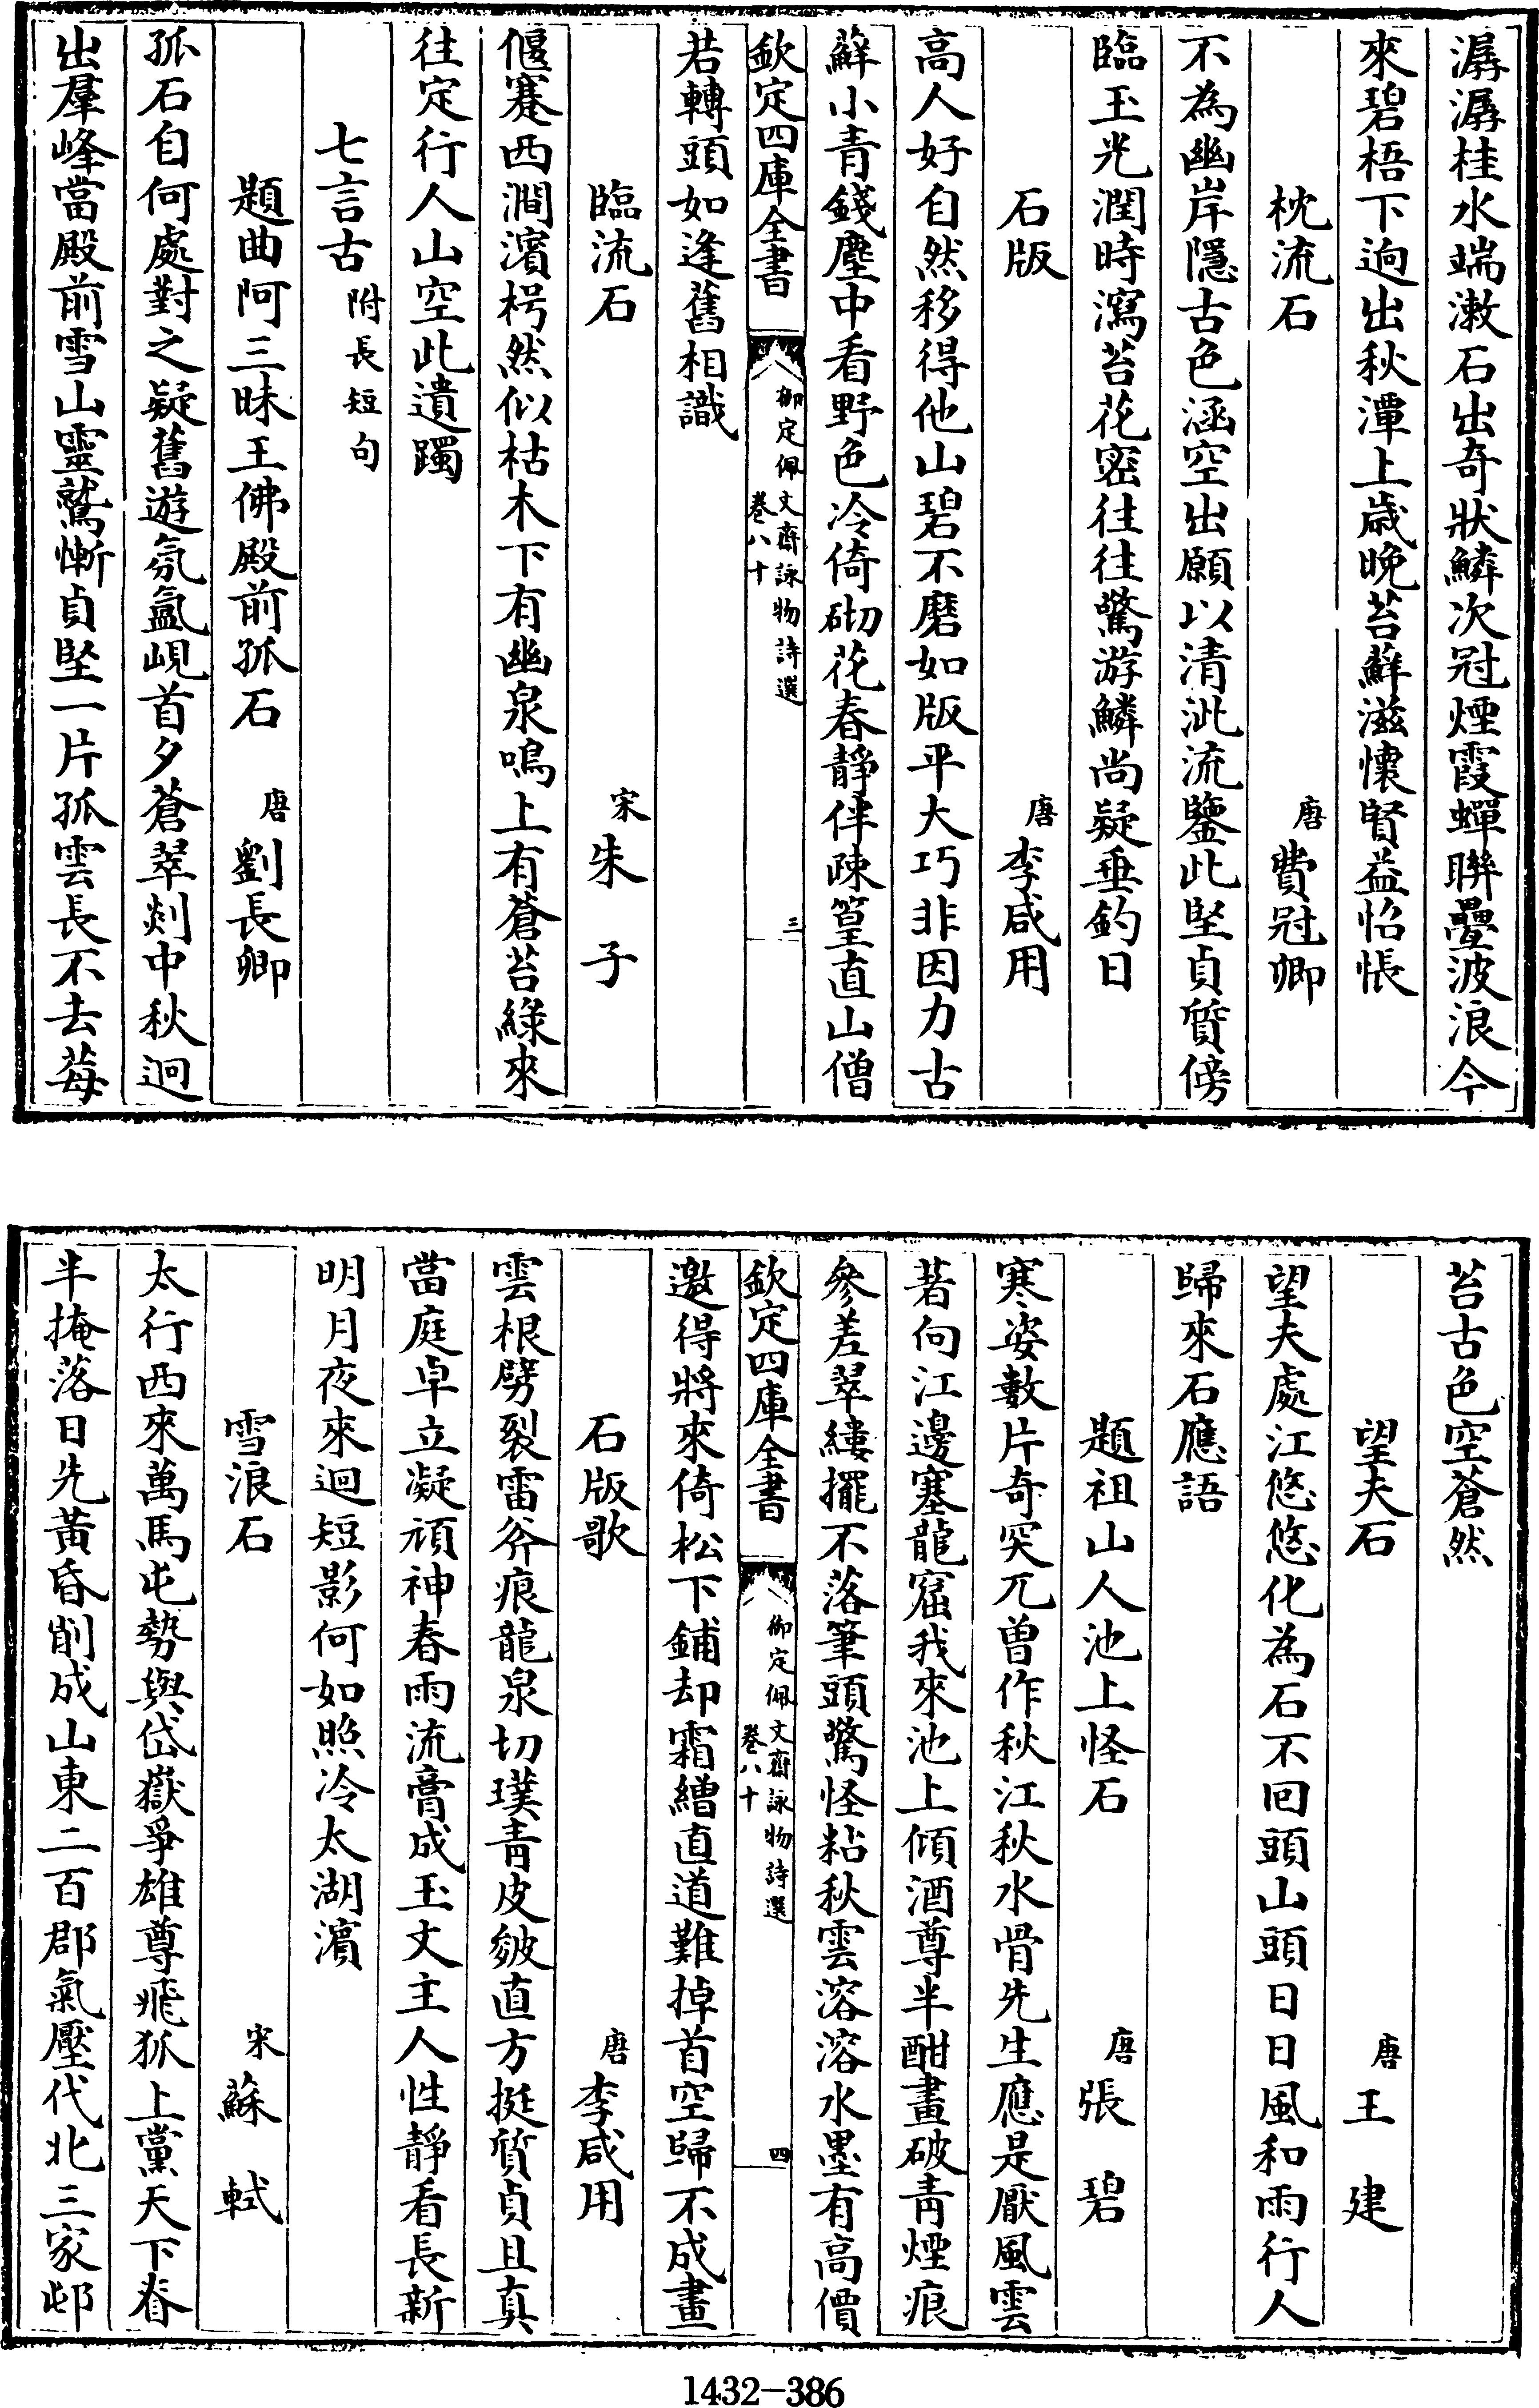 潺潺桂水端漱石出奇狀鱗次冠煙霞蟬聯疊波浪今
來碧梧下逈出秋潭上歲晚苔蘚滋懷賢益怊悵
枕流石 唐 費冠卿
不為幽岸隱古色涵空出願以清泚流鑒此堅貞質傍
臨玉光潤時瀉苔花密往往驚游鱗尚疑垂釣日
石版 唐 李咸用
高人好自然移得他山碧不磨如版平大巧非因力古
蘚小青錢塵中看野色冷倚砌花春靜伴疎篁直山僧
欽定四庫全書 御定佩文齋詠物詩選 卷八十 三
若轉頭如逢舊相識
臨流石 宋 朱子
偃蹇西澗濱枵然似枯木下有幽泉鳴上有蒼苔綠來
往定行人山空此遺躅
七言古 附長短句
題曲阿三昧王佛殿前孤石 唐 劉長卿
孤石自何處對之疑舊遊氛氳峴首夕蒼翠剡中秋迥
出羣峰當殿前雪山靈鷲慚貞堅一片孤雲長不去莓
苔古色空蒼然
望夫石 唐 王建
望夫處江悠悠化為石不回頭山頭日日風和雨行人
歸來石應語
題祖山人池上怪石 唐 張碧
寒姿數片奇突兀曽作秋江秋水骨先生應是厭風雲
著向江邊塞龍窟我來池上傾酒尊半酣畫破青煙痕
參差翠縷擺不落筆頭驚怪粘秋雲溶溶水墨有高價
欽定四庫全書 御定佩文齋詠物詩選 卷八十 四
邀得將來倚松下鋪却霜繒直道難掉首空歸不成畫
石版歌 唐 李咸用
雲根劈裂雷斧痕龍泉切璞青皮皴直方挺質貞且真
當庭卓立凝頑神春雨流膏成玉文主人性靜看長新
明月夜來迴短影何如照冷太湖濱
雪浪石 宋 蘇軾
太行西來萬馬屯勢與岱嶽爭雄尊飛狐上黨天下脊
半掩落日先黃昏削成山東二百郡氣壓代北三家邨
1432-386